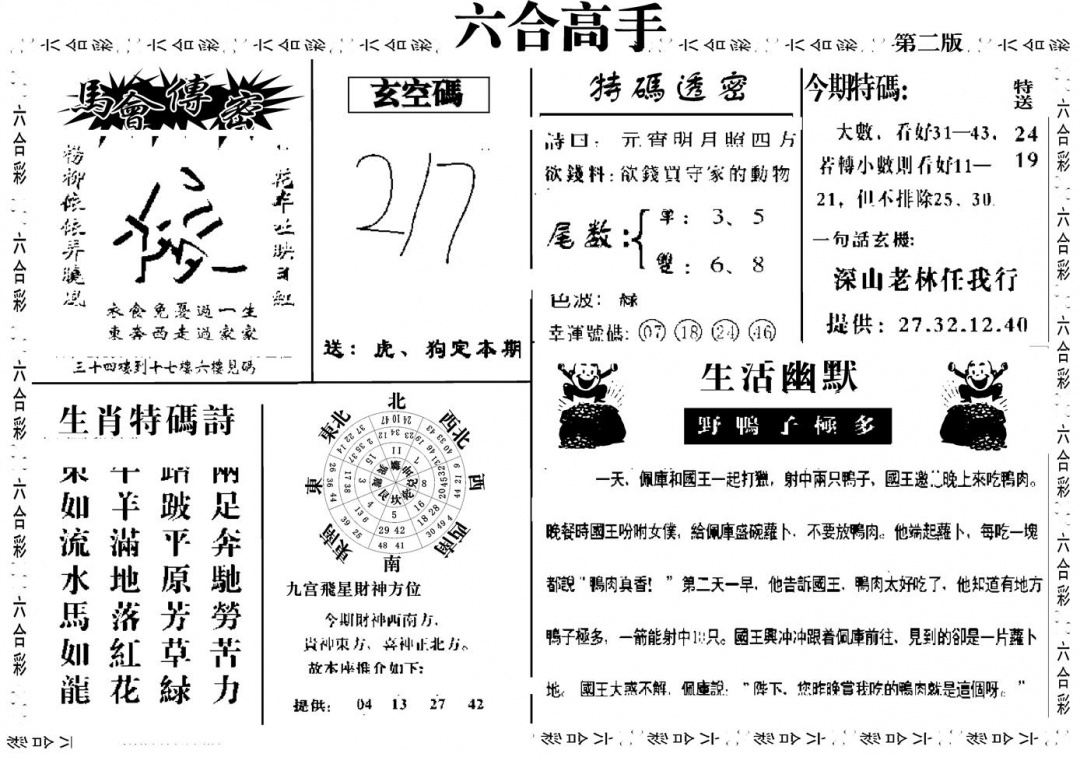 六合高手
第二版
馬會傳密
楊柳依依弄曉風
花卉吐映日紅
衣食免憂過一生
東奔西走過家家
三十四樓到十七樓六樓見碼
玄空碼
217
送：虎、狗定本期
特碼透密
詩曰：元宵明月照四方
欲錢料：欲錢買守家的動物
尾数：
單：3、5
雙：6、8
色波：綠
幸運號碼：07 18 24 46
今期特碼：
特送
24
19
大數，看好31—43，
若轉小數則看好11—
21，但不排除25、30
一句話玄機：
深山老林任我行
提供：27.32.12.40
生肖特碼詩
兩足奔馳勞苦力
踏跛平原芳草緑
牛羊滿地落紅花
東如流水馬如龍
北
西北
西
西南
南
東南
東
東北
九宮飛星財神方位
今期財神西南方，
貴神東方，喜神正北方。
故本座推介如下：
提供： 04 13 27 42
生活幽默
野鴨子極多
一天，佩庫和國王一起打獵，射中兩只鴨子，國王邀 晚上來吃鴨肉。
晚餐時國王吩咐女僕，給佩庫盛碗蘿卜，不要放鴨肉。他端起蘿卜，每吃一塊
都說“鴨肉真香！”第二天一早，他告訴國王，鴨肉太好吃了，他知道有地方
鴨子極多，一箭能射中 只。國王興冲冲跟着佩庫前往，見到的卻是一片蘿卜
地。國王大惑不解，佩庫說：“陛下，您昨晚嘗我吃的鴨肉就是這個呀。”
六合彩